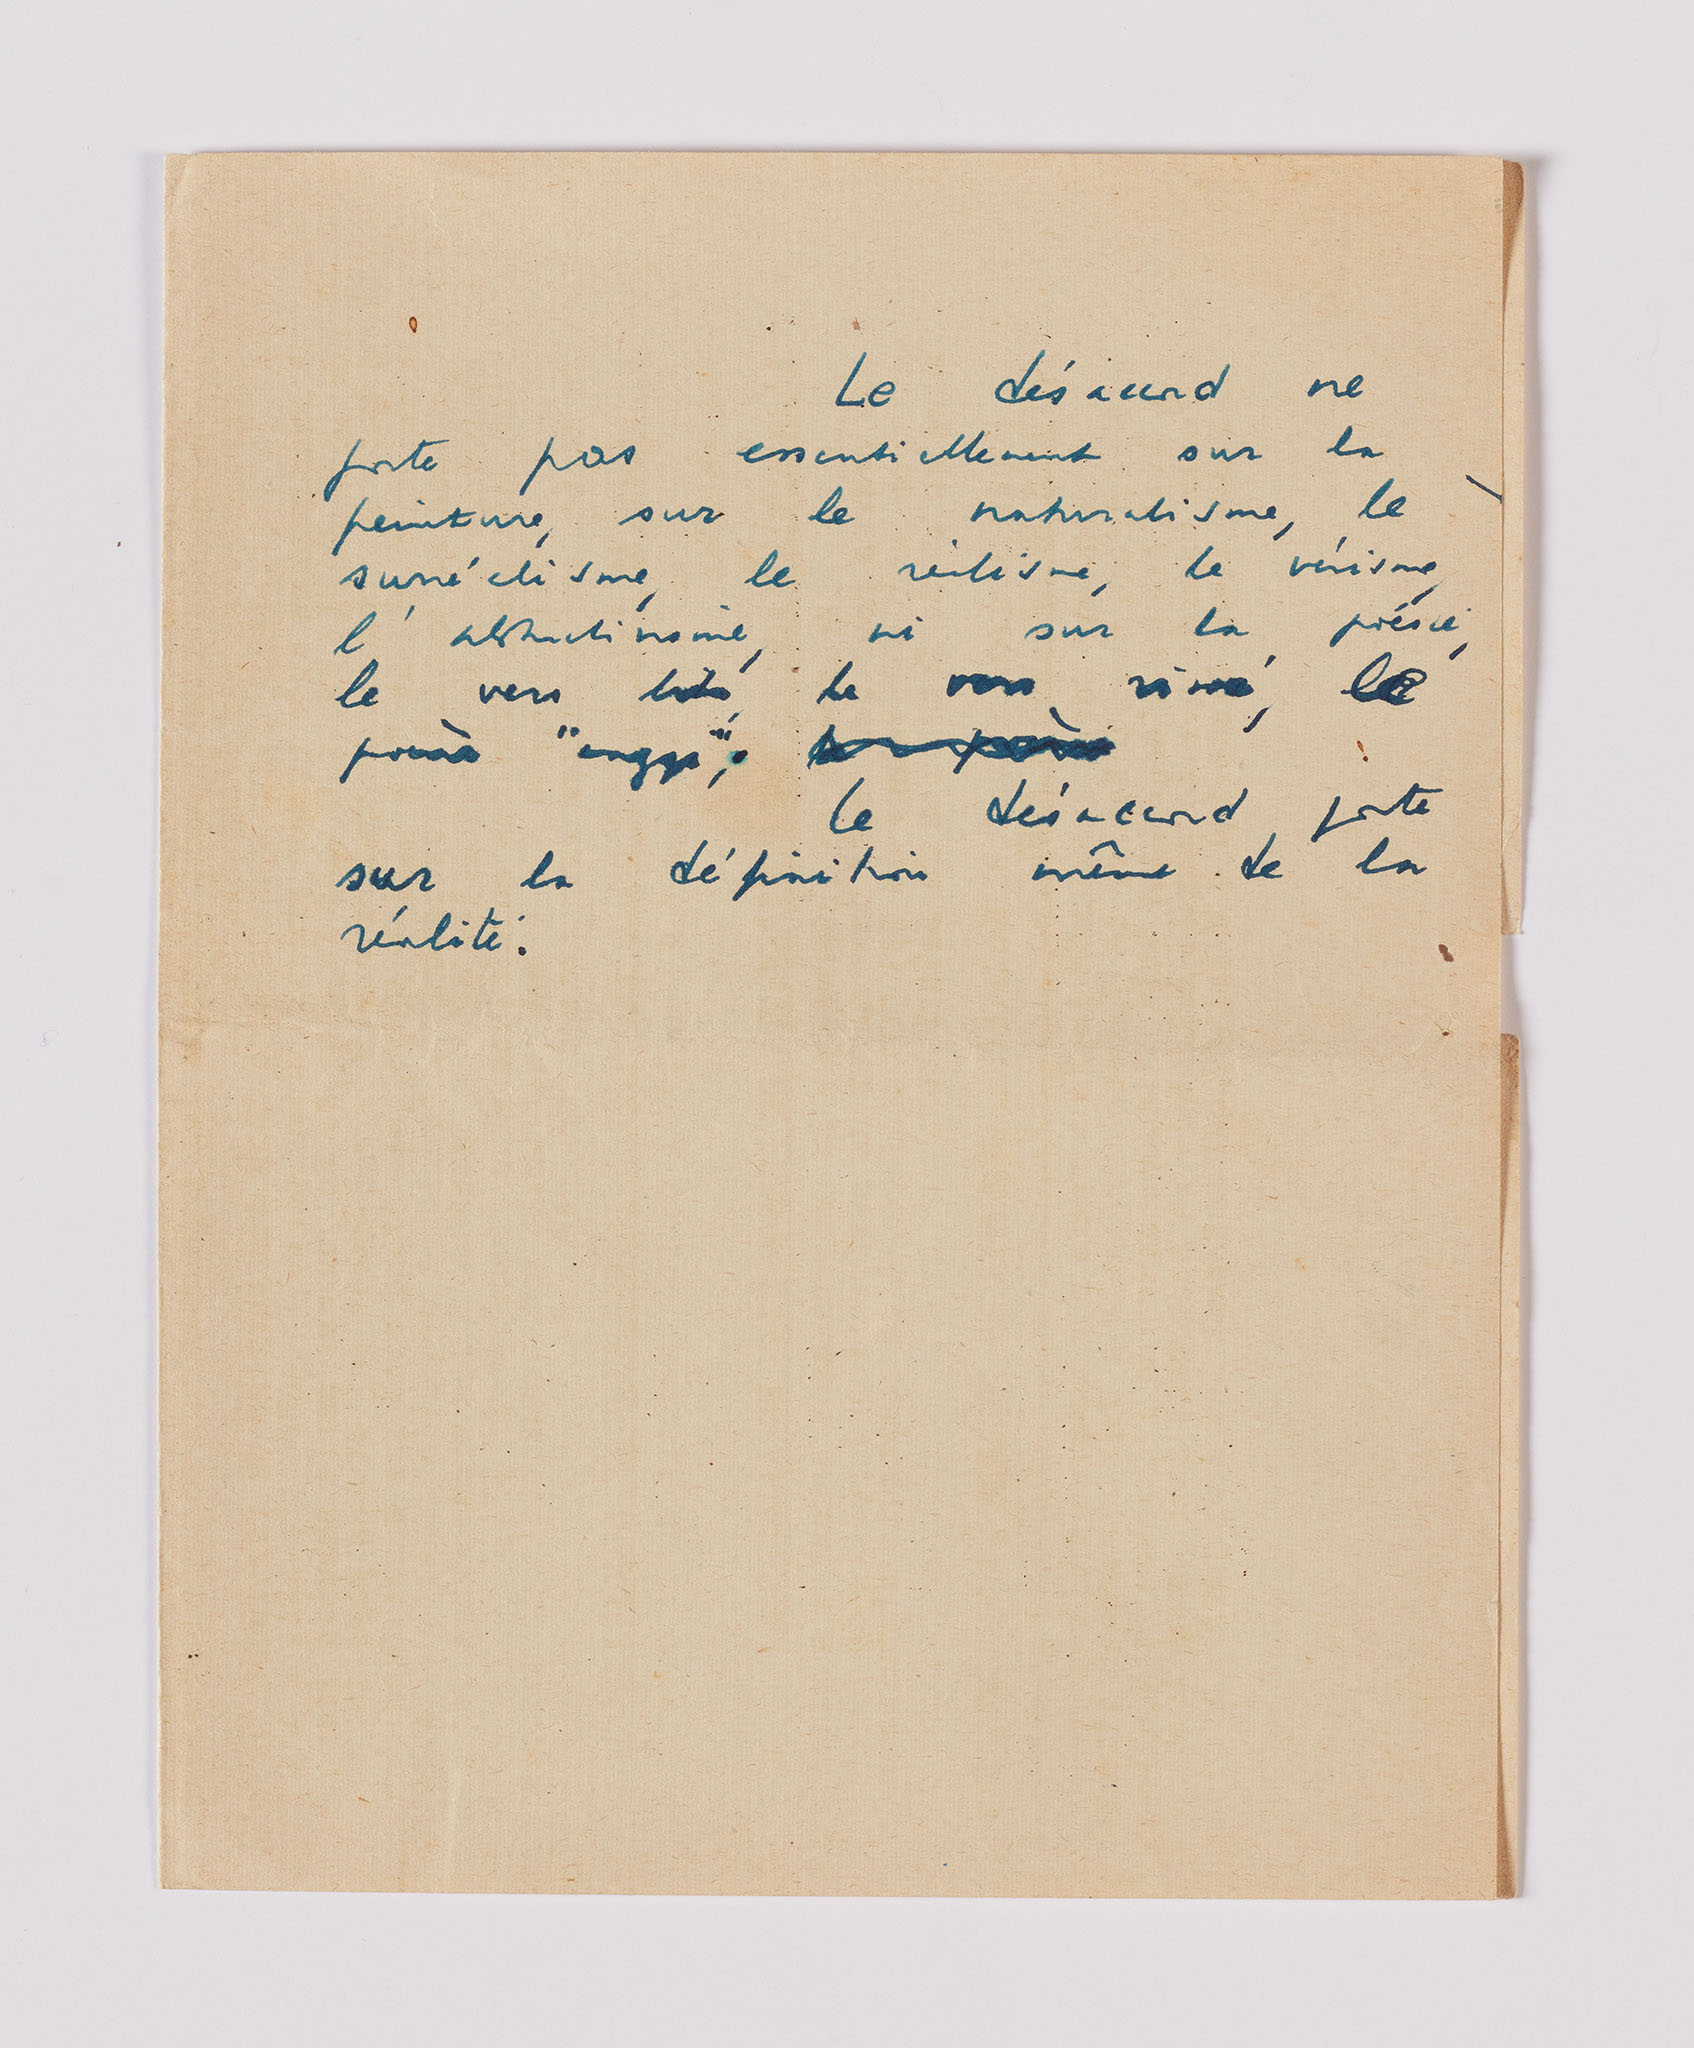 Le désaccord ne
porte pas essentiellement sur la
peinture, sur le naturalisme, le
surréalisme, le réalisme, le vérisme,
l'abstractivisme, ni sur la poésie,
le vers libre, le vers rimé, le
poème "engagé",
Le désaccord porte
sur la définition même de la
réalité.